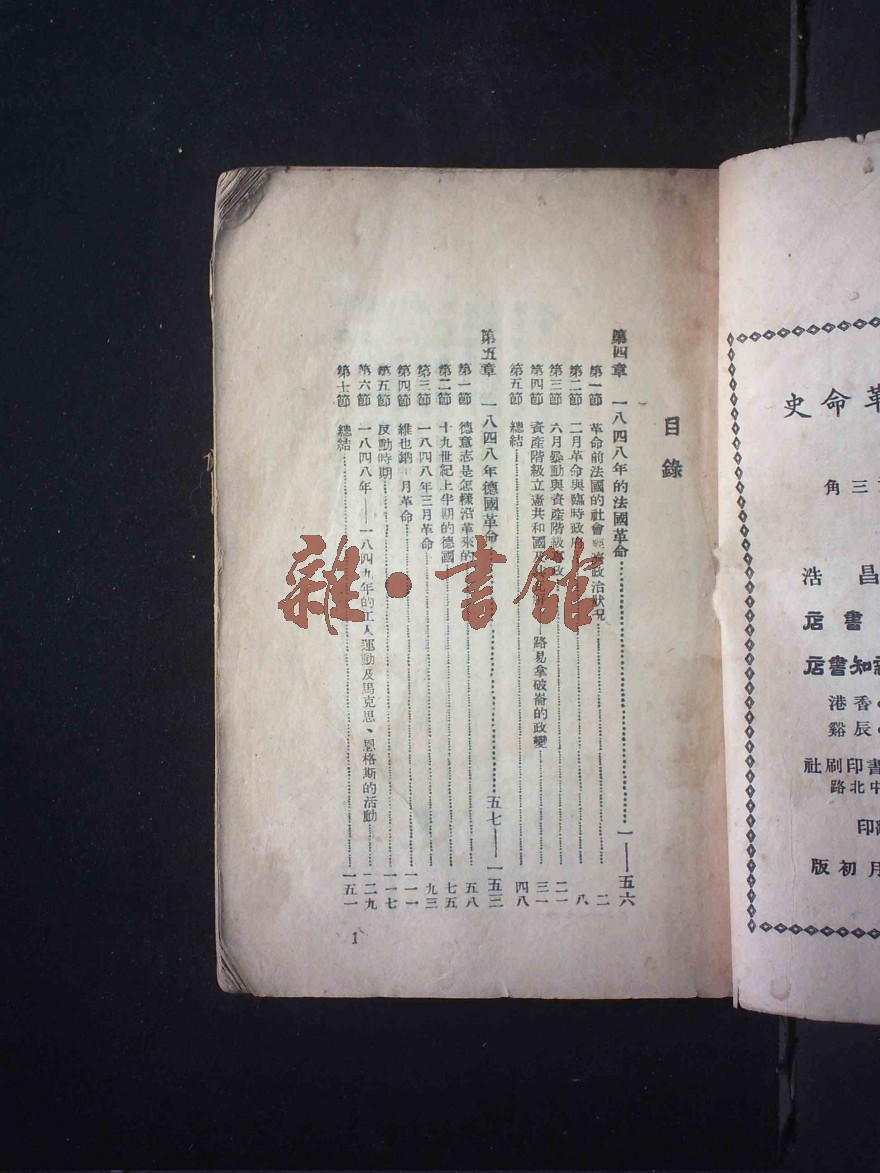 革命史
三角
昌浩
書店
新知書店
香港
辰谿
書印刷社
中北路
翻印
月初版
目錄
第四章 一八四八年的法國革命 一——五六
第一節 革命前法國的社會經濟政治狀況 二
第二節 二月革命與臨時政府 八
第三節 六月暴動與資產階級專政 二一
第四節 資產階級立憲共和國及 ——路易拿破崙的政變 三一
第五節 總結 四八
第五章 一八四八年德國革命 五七——一五三
第一節 德意志是怎樣沿革來的 五八
第二節 十九世紀上半期的德國 七五
第三節 一八四八年三月革命 九三
第四節 維也納 月革命 一一一
第五節 反動時期 一一七
第六節 一八四八年——一八四九年的工人運動及馬克思、恩格斯的活動 一二九
第七節 總結 一五一
1
雜·書館